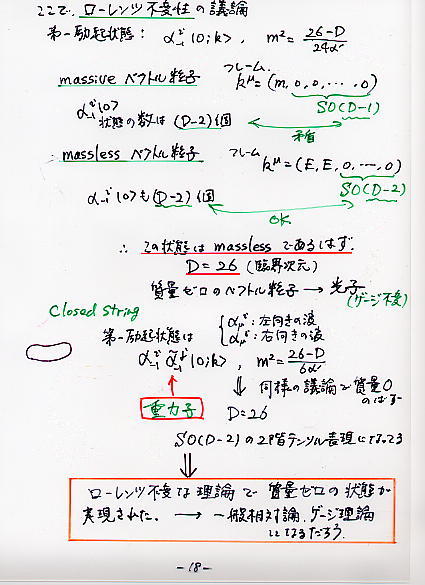 ここで、ローレンツ不変性の議論
第一励起状態: α₋₁ⁱ |0;k>, m² = (26-D)/24α'
massive ベクトル粒子 フレーム. k^μ = (m, 0, 0, ⋯, 0)
SO(D-1)
α₋₁ⁱ |0>
状態の数は (D-2) 個
矛盾
massless ベクトル粒子 フレーム k^μ = (E, E, 0, ⋯, 0)
SO(D-2)
α₋₁ⁱ |0> も (D-2) 個
OK
∴ この状態は massless であるはず.
D = 26 (臨界次元)
質量ゼロのベクトル粒子 → 光子
(ゲージ不変)
Closed String
第一励起状態は { : 左向きの波
: 右向きの波
|0;k>, m² = (26-D)/6α'
⇓ 同様の議論で質量0
のはず
重力子 D = 26
SO(D-2) の2階テンソル表現になってる
⇓
ローレンツ不変な理論で質量ゼロの状態が
実現された. → 一般相対論、ゲージ理論
になるだろう.
- 18 -